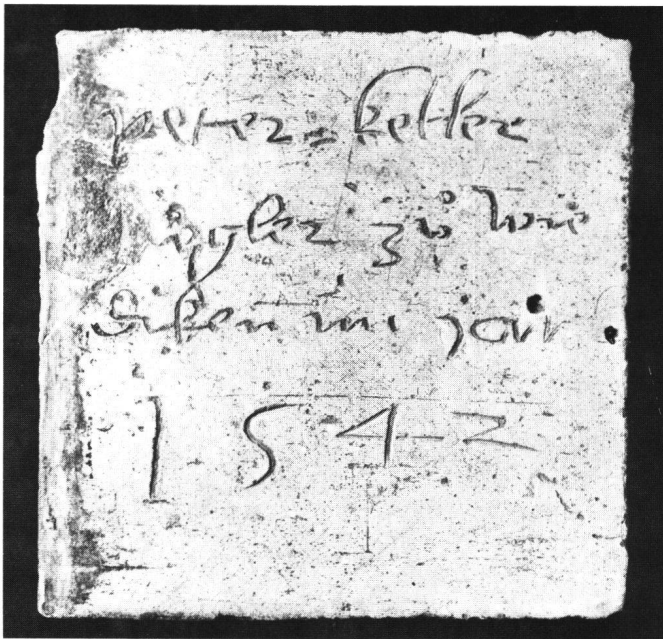 peter = keller
zigler zů wie
diken im jar
1542